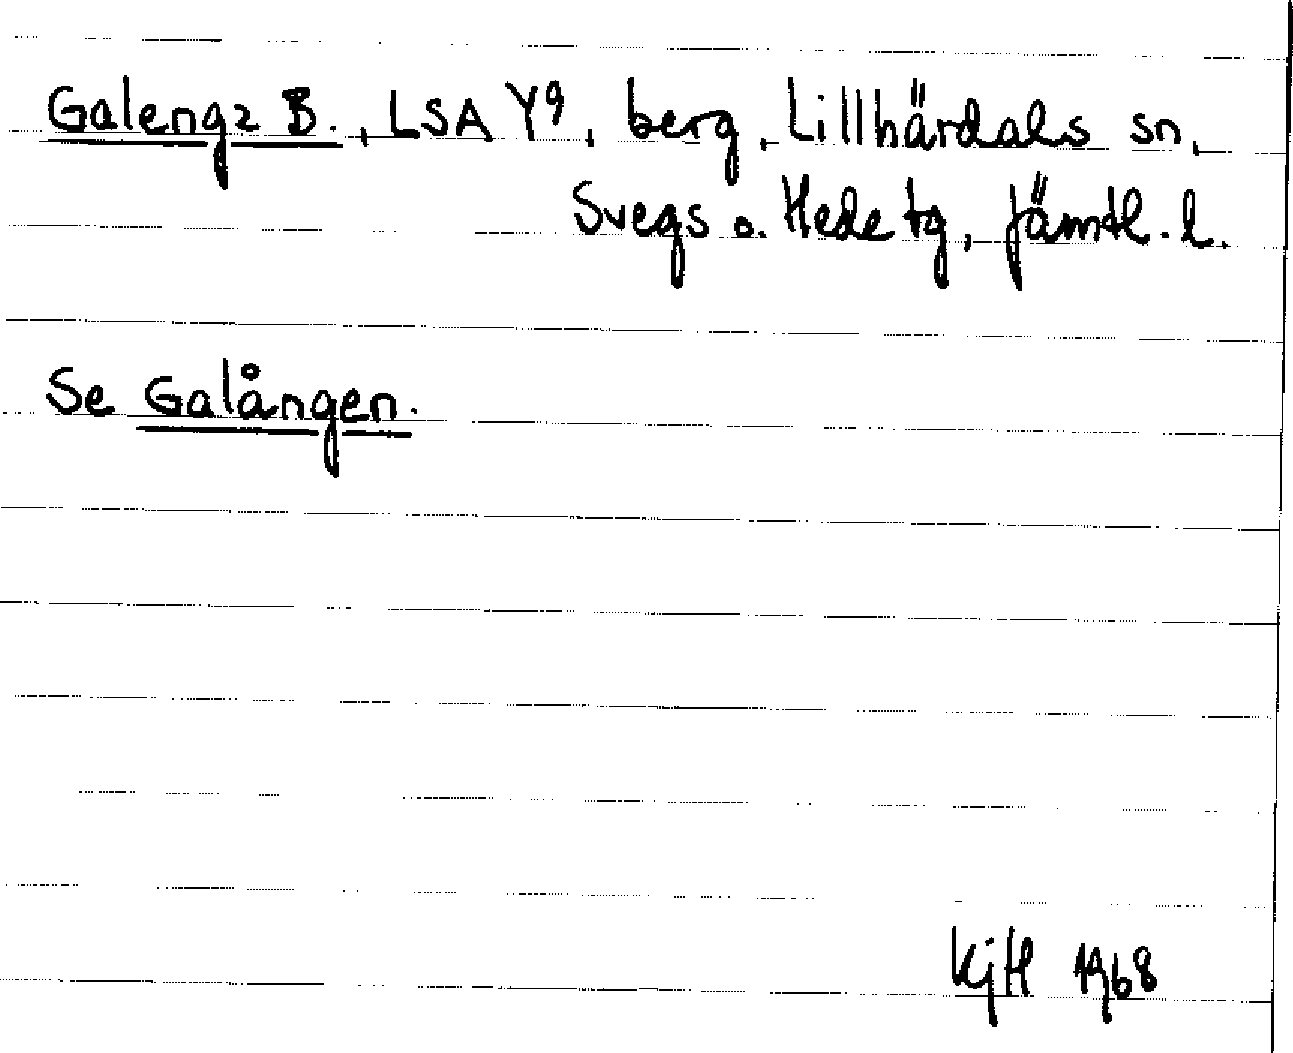 Galengz B., LSA Y9, berg, Lillhärdals sn,
Svegs o. Hede tg, Jämtl. l.
Se Galången.
KjH 1968